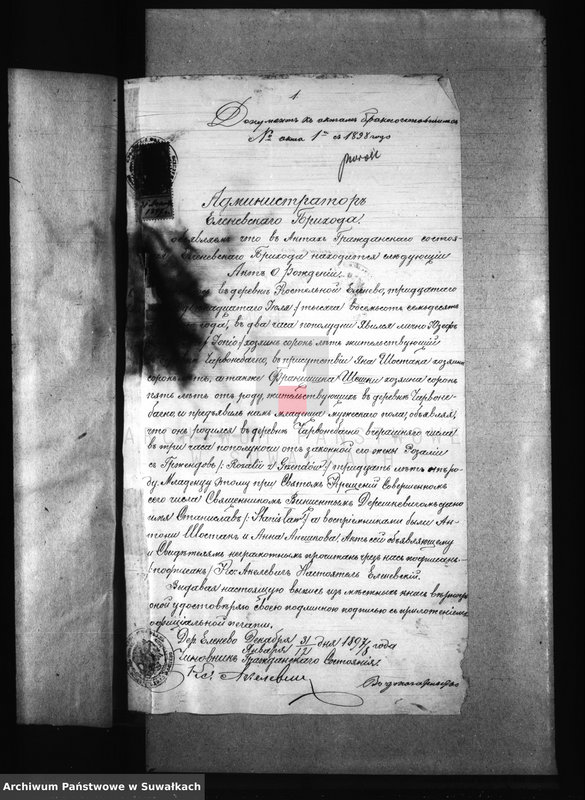 1
Документъ къ актамъ бракосочетавшихся
№ акта 1й съ 1898 года
Администраторъ
Еленевскаго Прихода
объявляемъ что въ Актахъ Гражданскаго состоя-
Еленевскаго Прихода находится следующій
Актъ о Рожденіи
въ деревнѣ Костельной Еленево, тридцатаго
Іюля / тысяча восемьсотъ семьдесятъ
года, въ два часа пополудни явился лично Юзефъ
хозяинъ сорокъ лѣтъ жительствующій
Червонебагно, въ присутствіи Яна Шостака хозяина
сорокъ лѣтъ, а также Францишка хозяина сорокъ
пять лѣтъ отъ роду, жительствующихъ въ деревнѣ Червоне-
багно, и предъявилъ намъ младенца мужескаго пола, объявляя,
что онъ родился въ деревнѣ Червонебагно вчерашняго числа
въ три часа пополуночи отъ законной его жены Розаліи
съ Гржендовъ /: Rozalii z Grzendów :/ тридцать лѣтъ отъ ро-
ду. Младенцу этому при Святомъ Крещеніи совершенномъ
сего числа Священникомъ Викентіемъ дано
имя Станиславъ /: Stanisław :/ а воспріемниками были Ан-
тони Шостакъ и Анна Актъ сей объявляющему
и Свидѣтелямъ неграмотнымъ прочитанъ нами подписанъ
/ подписанъ / Кс. Акелевичъ Настоятель Еленевскій.
Выдавая настоящую выпись изъ мѣстныхъ книгъ вѣрность
оной удостовѣряю своею подлинною подписью съ приложеніемъ
оффиціальной печати.
Дер. Еленево Декабря 31 дня 1897/8 года
Января / 12
Чиновникъ Гражданскаго Состоянія
Кс. Акелевичъ
Archiwum Państwowe w Suwałkach